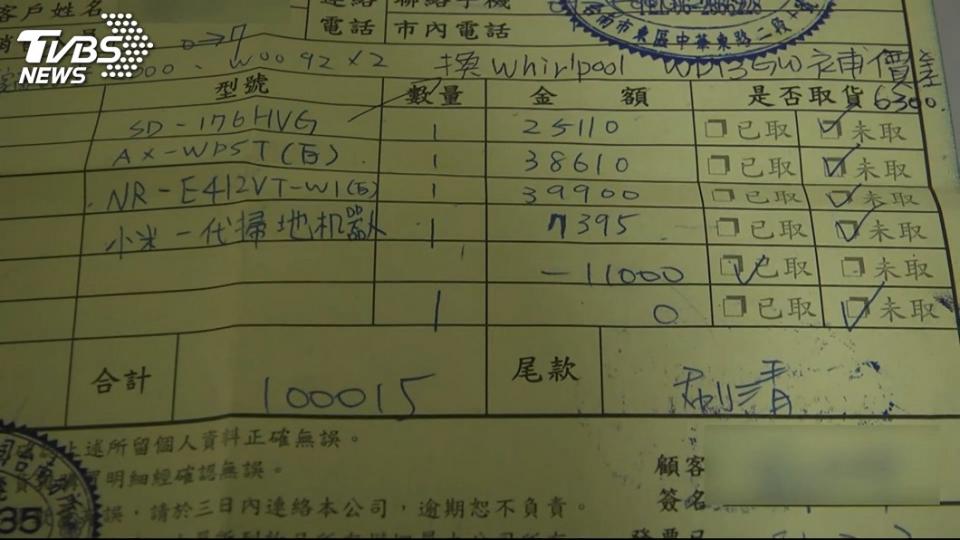 客戶姓名 連絡電話 市內電話
TVBS NEWS
台南市東區中華東路二段
W0092×2 換Whirlpool 補價差 6300.
型號 數量 金額 是否取貨
SD-176HVG 1 25110 已取 未取
AX-WP5T(白) 1 38610 已取 未取
NR-E412VT-W1(白) 1 39900 已取 未取
小米一代掃地机器人 1 7395 已取 未取
-11000 已取 未取
1 0 已取 未取
合計 100015 尾款 刷清
上述所留個人資料正確無誤。
明細經確認無誤。
誤，請於三日內連絡本公司，逾期恕不負責。
顧客
簽名
35